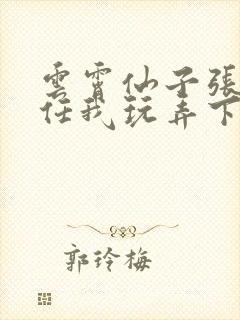 雲霄仙子張
任我玩弄下
郭玲梅